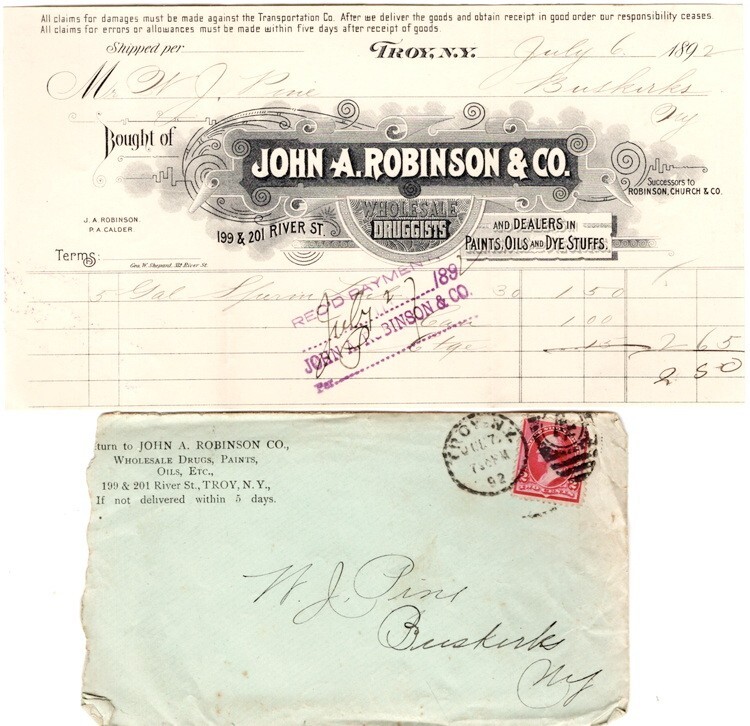 All claims for damages must be made against the Transportation Co. After we deliver the goods and obtain receipt in good order our responsibility ceases.
All claims for errors or allowances must be made within five days after receipt of goods.
Shipped per TROY, N.Y. July 6 1892
Mr W. J. Pine Buskirks
Ny
Bought of
JOHN A. ROBINSON & CO.
SUCCESSORS TO
ROBINSON, CHURCH & CO.
J. A. ROBINSON.
P. A. CALDER
WHOLESALE
DRUGGISTS
199 & 201 RIVER ST.
AND DEALERS IN
PAINTS, OILS AND DYE STUFFS.
Terms:
Geo. W. Shepard, 312 River St.
5 Gal Sperm 30 1.50
Can 1.00
Ctge 15 2 65
2 50
REC'D PAYMENT
July 27 1892
JOHN A. ROBINSON & CO.
Per
turn to JOHN A. ROBINSON CO.,
WHOLESALE DRUGS, PAINTS,
OILS, ETC.,
199 & 201 River St., TROY, N.Y.,
If not delivered within 5 days.
TROY, N.Y.
JUL 7
92
TWO CENTS
W. J. Pine
Buskirks
Ny